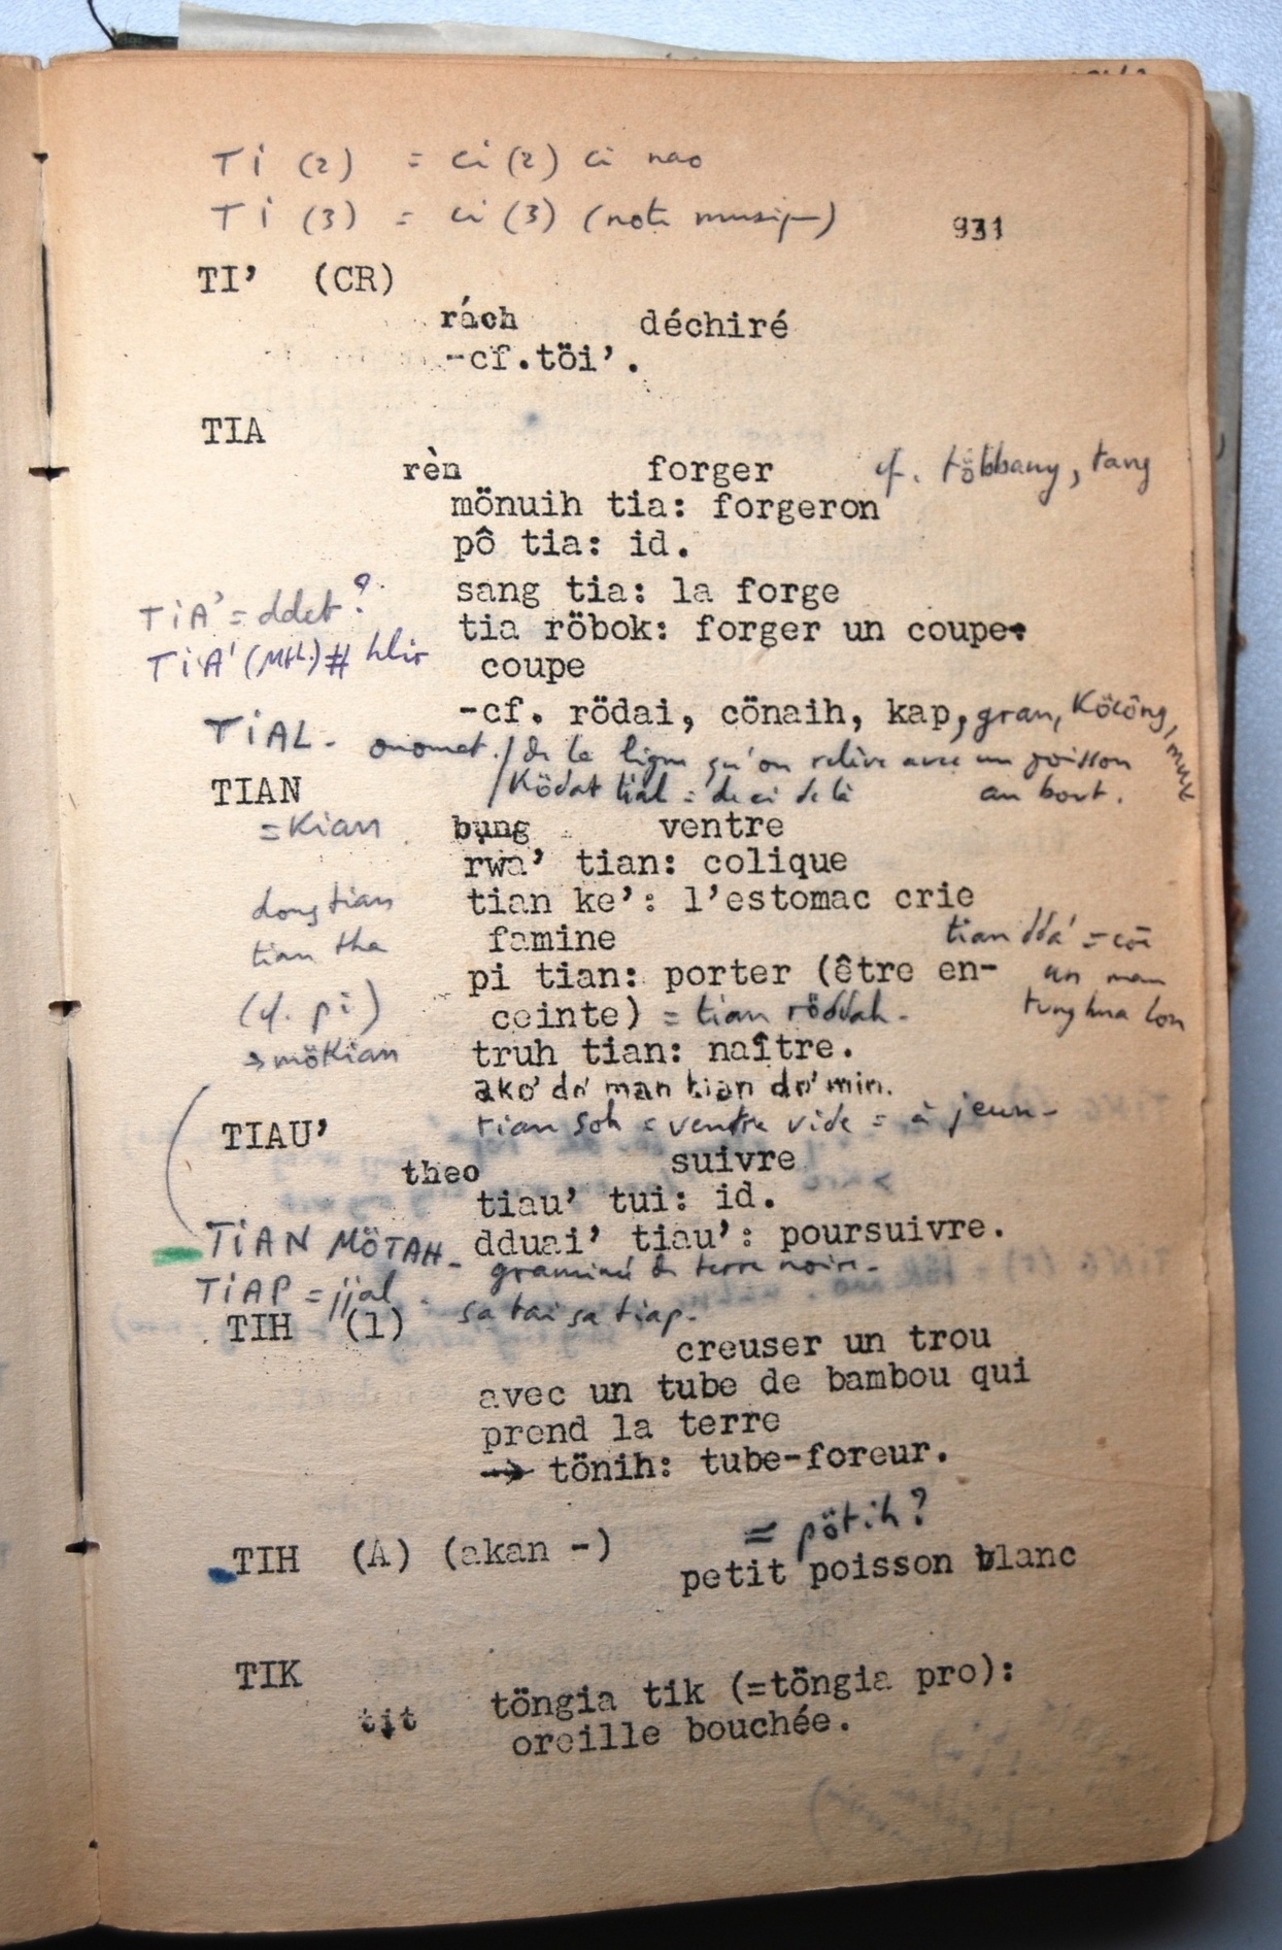 Ti (2) = ci (2) ci nao
Ti (3) = ci (3) (note musique)
931
TI’ (CR)
rách déchiré
-cf.töi’.
TIA
rèn forger cf. többang, tang
mönuih tia: forgeron
pô tia: id.
sang tia: la forge
TiA' = ddet ?
tia röbok: forger un coupe-
TiA' (MHL) # hlir
coupe
-cf. rödai, cönaih, kap, gran, Köcông,
TiAL - onomat. / de la ligne qu'on relève avec un poisson
au bout.
/ Ködat tial = de ci de là
TIAN
= Kian
bụng ventre
rwa’ tian: colique
tian ke’: l’estomac crie
dong tian
famine
tian tha
tian dda' =
pi tian: porter (être en-
ceinte) = tian röddah -
(cf. pi)
truh tian: naître.
→ mökian
ako' dơ' man tian dơ' min.
tian soh = ventre vide = à jeun -
TIAU’
theo suivre
tiau’ tui: id.
dduai’ tiau’: poursuivre.
TiAN MÖTAH - graminée de terre noire -
TiAP = jjal - sa tai sa tiap -
TIH (1)
creuser un trou
avec un tube de bambou qui
prend la terre
→ tönih: tube-foreur.
= pötih ?
TIH (A) (akan -)
petit poisson blanc
TIK
tịt töngia tik (=töngia pro):
oreille bouchée.